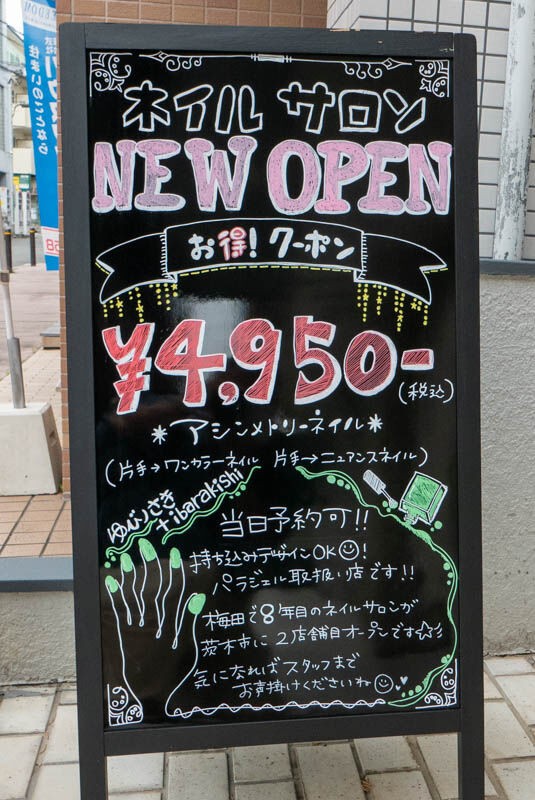 ネイル サロン
NEW OPEN
お得! クーポン
¥4,950-
(税込)
*アシンメトリーネイル*
(片手→ワンカラーネイル 片手→ニュアンスネイル)
ゆびいさき
+ibarakishi
当日予約可!!
持ち込みデザインOK☺!
パラジェル取扱い店です!!
梅田で8年目のネイルサロンが
茨木市に2店舗目オープンです☆彡
気になればスタッフまで
お声掛けくださいね☺♥
住まいのことなら